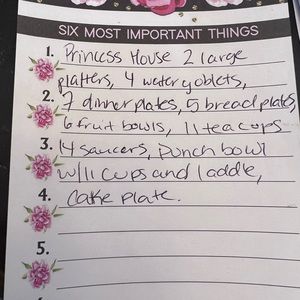 SIX MOST IMPORTANT THINGS
1. Princess House 2 large
platters, 4 water goblets,
2. 7 dinner plates, 5 bread plates,
6 fruit bowls, 11 tea cups
3. 14 saucers, Punch bowl
w/11 cups and laddle,
4. Cake plate.
5.